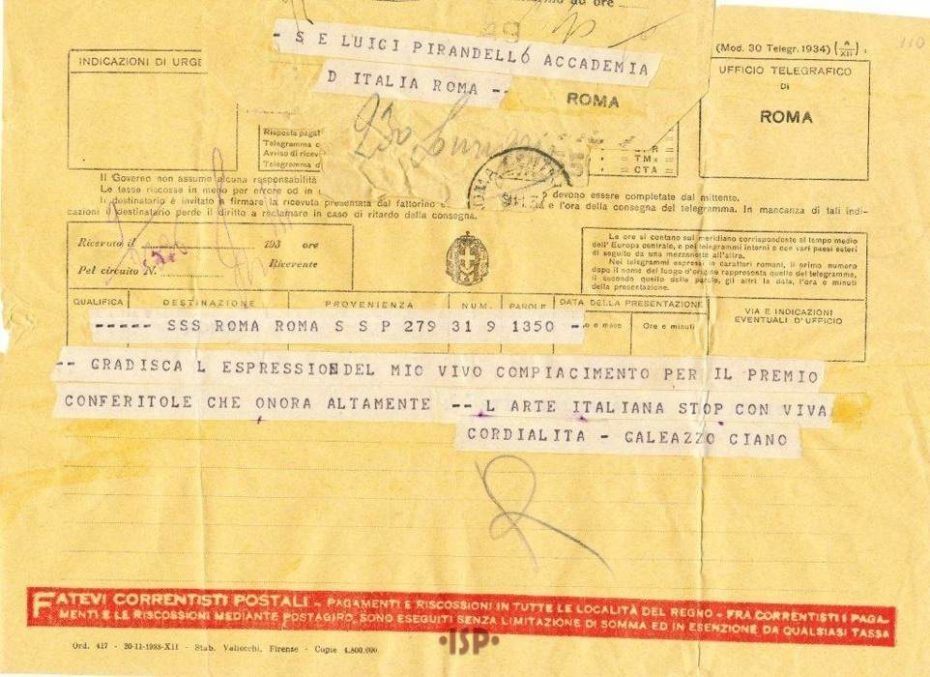 mo ad ore
- S E LUIGI PIRANDELLO ACCADEMIA
D ITALIA ROMA --
(Mod. 30 Telegr. 1934) (A/XII)
110
INDICAZIONI DI URGE
UFFICIO TELEGRAFICO
DI
ROMA
ROMA
Risposta pagat
Telegramma c
Avviso di ricev
Telegramma
= TMx =
= CTA =
Il Governo non assume alcuna responsabilità
Le tasse riscosse in meno per errore od in devono essere completate dal mittente.
Il destinatario è invitato a firmare la ricevuta presentata dal fattorino e l'ora della consegna del telegramma. In mancanza di tali indi-
cazioni il destinatario perde il diritto a reclamare in caso di ritardo della consegna.
Ricevuto il 193 ore
Pel circuito N. Ricevente
Le ore si contano sul meridiano corrispondente al tempo medio
dell'Europa centrale, e pei telegrammi interni e con vari paesi esteri
di seguito da una mezzanotte all'altra.
Nei telegrammi espressi in caratteri romani, il primo numero
dopo il nome del luogo d'origine rappresenta quello del telegramma,
il secondo quello delle parole, gli altri la data, l'ora e minuti
della presentazione.
QUALIFICA DESTINAZIONE PROVENIENZA NUM. PAROLE DATA DELLA PRESENTAZIONE VIA E INDICAZIONI EVENTUALI D'UFFICIO
o e mese Ore e minuti
----- SSS ROMA ROMA S S P 279 31 9 1350 -
-- GRADISCA L ESPRESSION DEL MIO VIVO COMPIACIMENTO PER IL PREMIO
CONFERITOLE CHE ONORA ALTAMENTE -- L ARTE ITALIANA STOP CON VIVA
CORDIALITA - GALEAZZO CIANO
FATEVI CORRENTISTI POSTALI - PAGAMENTI E RISCOSSIONI IN TUTTE LE LOCALITÀ DEL REGNO - FRA CORRENTISTI I PAGA-
MENTI E LE RISCOSSIONI MEDIANTE POSTAGIRO, SONO ESEGUITI SENZA LIMITAZIONE DI SOMMA ED IN ESENZIONE DA QUALSIASI TASSA
•ISP•
Ord. 417 - 20-11-1933-XII - Stab. Vallecchi, Firenze - Copie 4.800.000